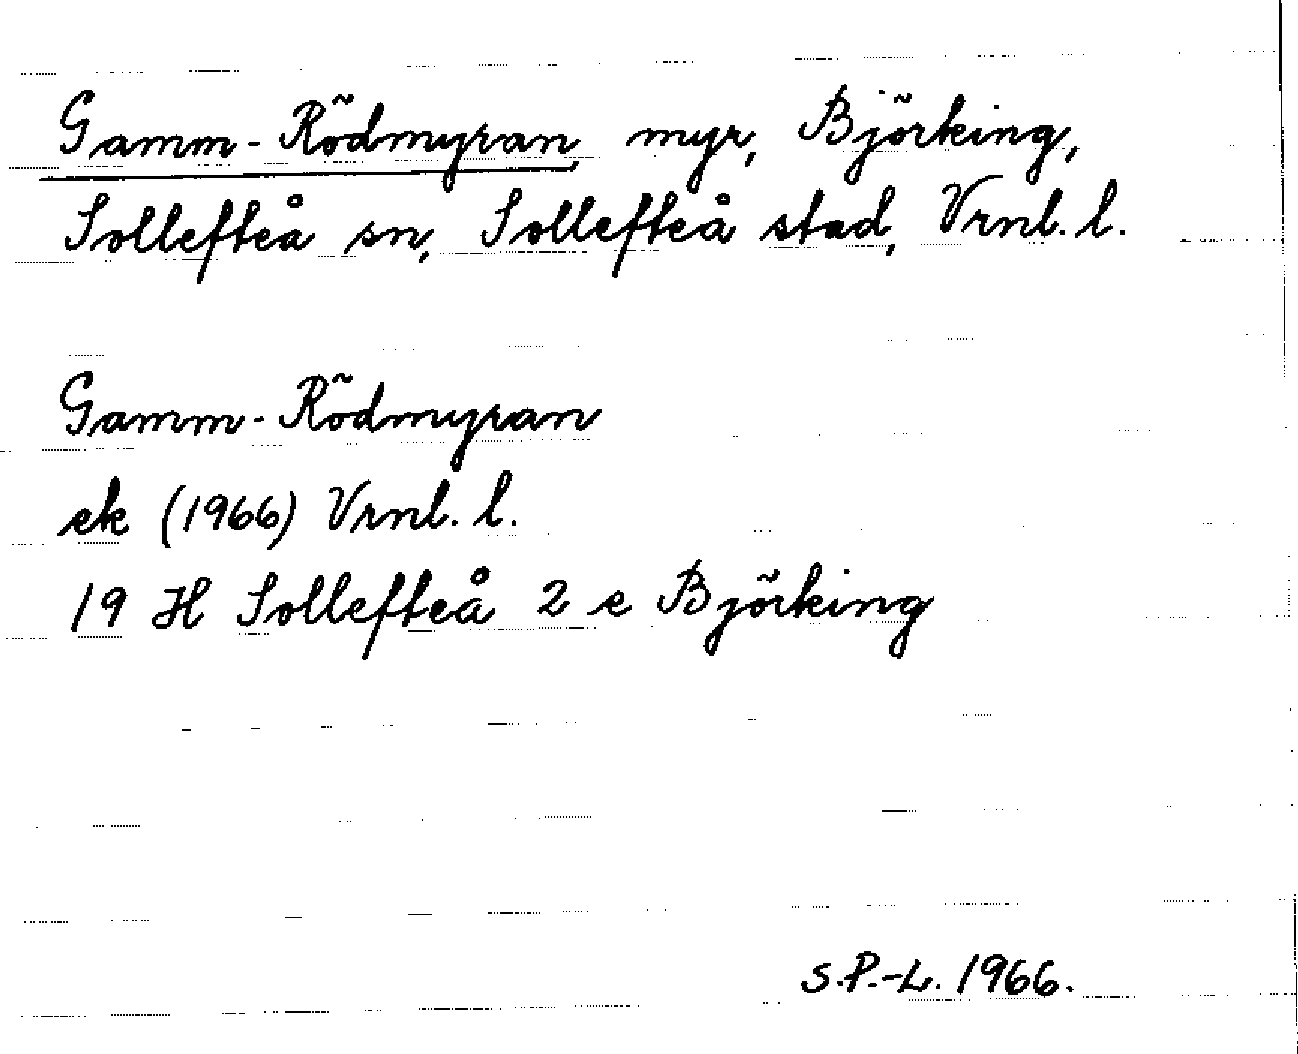 Gamm-Rödmyran, myr, Björking,
Sollefteå sn, Sollefteå stad, Vrnl. l.
Gamm-Rödmyran
ek (1966) Vrnl. l.
19 H Sollefteå 2 e Björking
S.P.-L. 1966.